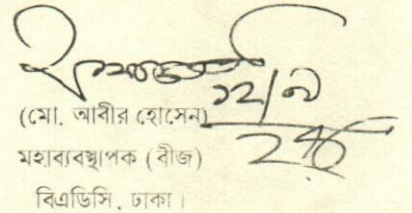 ১২/৯
(মো. আবীর হোসেন)
মহাব্যবস্থাপক (বীজ)
বিএডিসি, ঢাকা।